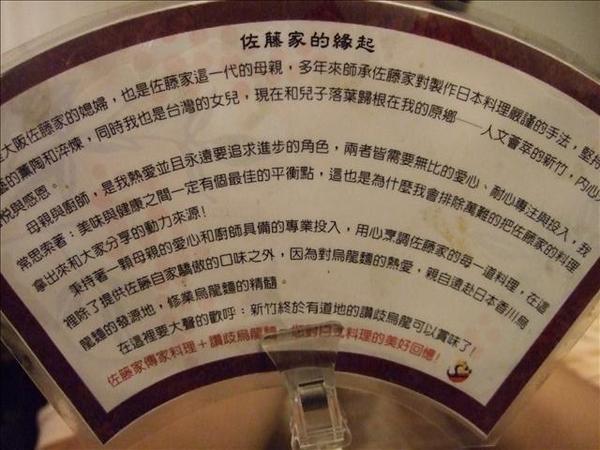 佐藤家的緣起
大阪佐藤家的媳婦，也是佐藤家這一代的母親，多年來師承佐藤家對製作日本料理嚴謹的手法，堅持
的薰陶和淬煉，同時我也是台灣的女兒，現在和兒子落葉歸根在我的原鄉——人文薈萃的新竹，內心
悅與感恩。
母親與廚師，是我熱愛並且永遠要追求進步的角色，兩者皆需要無比的愛心、耐心專注與投入，我
常思索著：美味與健康之間一定有個最佳的平衡點，這也是為什麼我會排除萬難的把佐藤家的料理
拿出來和大家分享的動力來源！
秉持著一顆母親的愛心和廚師具備的專業投入，用心烹調佐藤家的每一道料理，在這
裡除了提供佐藤自家驕傲的口味之外，因為對烏龍麵的熱愛，親自遠赴日本香川烏
龍麵的發源地，修業烏龍麵的精髓
在這裡要大聲的歡呼：新竹終於有道地的讚岐烏龍可以嘗味了！
佐藤家傳家料理＋讚岐烏龍麵 日式料理的美好回憶！